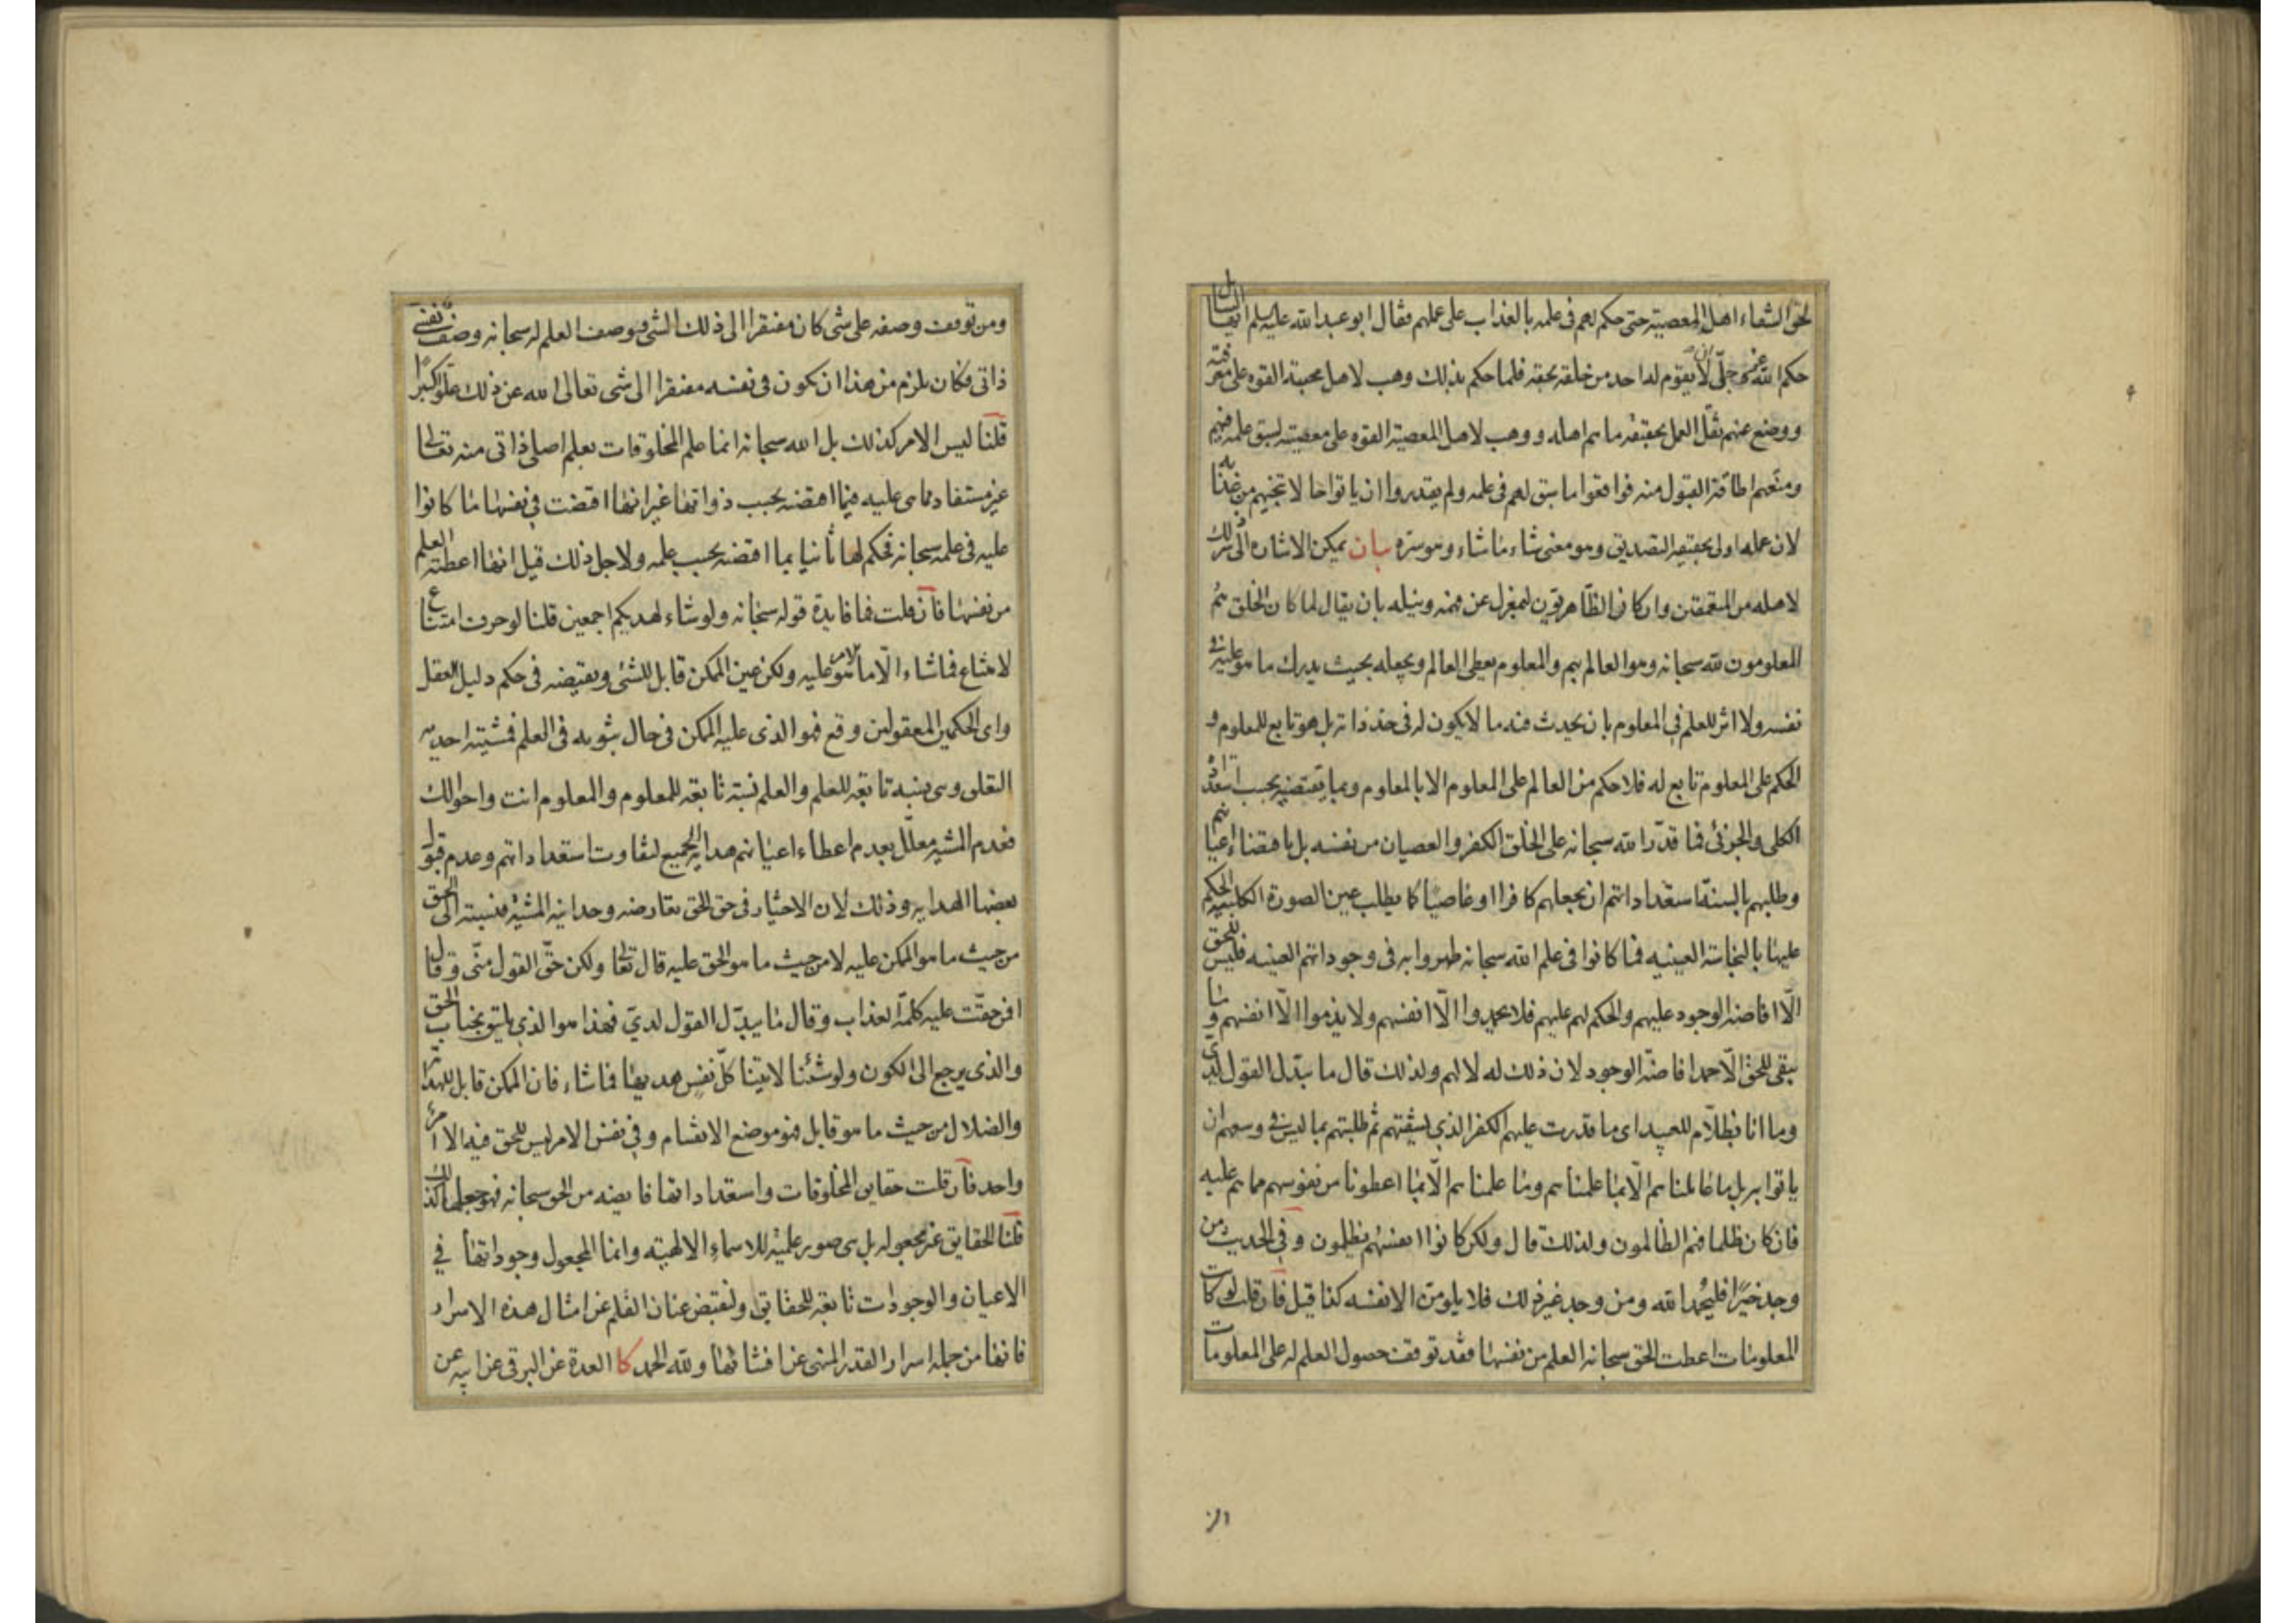 لحق الشقاء اهل المعصية حتى حكم لهم فى علمه بالعذاب على عملهم فقال ابو عبد الله عليه السلم ايها السائل
حكم الله عز و جلّ ان لا يقوم له احد من خلقه بحقه فلما حكم بذلك وهب لاهل محبته القوه على معرفته
ووضع عنهم ثقل العمل بحقيقة ما هم اهله و وهب لاهل المعصية القوه على معصيته لسبق علمه فيهم
ومنعهم اطاقة القبول منه فوافقوا ما سبق لهم فى علمه ولم يقدروا ان ياتوا حالا تنجيهم من عذابه
لان علمه اولى بحقيقة التصديق وهو معنى شاء ما شاء وهو سره بيان يمكن الاشارة الى سر ذلك
لاهله من المتعمقين وان كان الظاهريون لبمعزل عن فهمه ونيله بان يقال لما كان الخلق هم
المعلومون لله سبحانه وهو العالم بهم والمعلوم يعطى العالم ويجعله بحيث يدرك ما هو عليه فى
نفسه ولا اثر للعلم فى المعلوم بان يحدث فيه ما لا يكون له فى حد ذاته بل هو تابع للمعلوم و
الحكم على المعلوم تابع له فلا حكم من العالم على المعلوم الا بالمعلوم وبما يقتضيه بحسب استعداده
الكلى والجزئى فما قدّر الله سبحانه على الخلق الكفر والعصيان من نفسه بل باقتضاء اعيانهم
وطلبهم بالسنة استعداداتهم ان يجعلهم كافرا او عاصيا كما يطلب عين الصورة الكلبية الحكم
عليها بالنجاسة العينيه فما كانوا فى علم الله سبحانه ظهروا به فى وجوداتهم العينيه فليس للحق
الّا افاضة الوجود عليهم والحكم لهم عليهم فلا يحمدوا الّا انفسهم ولا يذموا الّا انفسهم وما
يبقى للحق الّا حمد افاضة الوجود لان ذلك له لا لهم ولذلك قال ما يبدّل القول لدىّ
وما انا بظلّام للعبيد اى ما قدرت عليهم الكفر الذي يشقيهم ثم طلبتهم بما ليس فى وسعهم ان
ياتوا به بل ما عاملناهم الّا بما علمناهم وما علمناهم الّا بما اعطونا من نفوسهم مما هم عليه
فان كان ظلما فهم الظالمون ولذلك قال ولكن كانوا انفسهم يظلمون وفى الحديث من
وجد خيرًا فليحمد الله ومن وجد غير ذلك فلا يلومن الا نفسه كذا قيل فان قلت لو كانت
المعلومات اعطت الحق سبحانه العلم من نفسها فقد توقف حصول العلم له على المعلومات
ومن توقف وصفه على شى كان مفتقرا الى ذلك الشى ووصف العلم له سبحانه وصف نفسى
ذاتى فكان يلزم من هذا ان يكون فى نفسه مفتقرا الى شى تعالى الله عن ذلك علوّا كبيرًا
قلنا ليس الامر كذلك بل الله سبحانه انما علم المخلوقات بعلم اصلى ذاتى منه تعالى
غير مستفاد مما هى عليه فيما اقتضته بحسب ذواتها غير انها اقتضت فى نفسها ما كانوا
عليه فى علمه سبحانه فحكم لها ثانيا بما اقتضته بحسب علمه ولاجل ذلك قيل انها اعطته العلم
من نفسها فان قلت فما فايدة قوله سبحانه ولو شاء لهديكم اجمعين قلنا لو حرف امتناع
لامتناع فما شاء الّا ما هو الامر عليه ولكن عين الممكن قابل للشئ ونقيضه فى حكم دليل العقل
واى الحكمين المعقولين وقع فهو الذى عليه الممكن فى حال ثبوته فى العلم فمشيته احديه
التعلق وهى نسبة تابعة للعلم والعلم نسبة تابعة للمعلوم والمعلوم انت واحوالك
فعدم المشية معلّل بعدم اعطاء اعيانهم هداية الجميع لتفاوت استعداداتهم وعدم قبول
بعضها الهداية وذلك لان الاختيار فى حق الحق تعارضه وحدانية المشية فنسبته الى الحق
من حيث ما هو الممكن عليه لا من حيث ما هو الحق عليه قال تعالى ولكن حقّ القول منّى وقال
افمن حقّت عليه كلمة العذاب وقال ما يبدّل القول لديّ فهذا هو الذي يليق بجناب الحق
والذى يرجع الى الكون ولو شئنا لاتينا كلّ نفس هديها فما شاء فان الممكن قابل للهداية
والضلال من حيث ما هو قابل فهو موضع الانقسام وفى نفس الامر ليس للحق فيه الا امر
واحد فان قلت حقايق المخلوقات واستعداداتها فايضه من الحق سبحانه فهو جعلها كذلك
قلنا الحقايق غير مجعوله بل هى صور علمية للاسماء الالهيه وانما المجعول وجوداتها فى
الاعيان والوجودات تابعة للحقايق ولنقبض عنان القلم عن امثال هذه الاسرار
فانها من جملة اسرار القدر المنهى عن افشائها ولله الحمد كا العدة عن البرقى عن ابيه عن